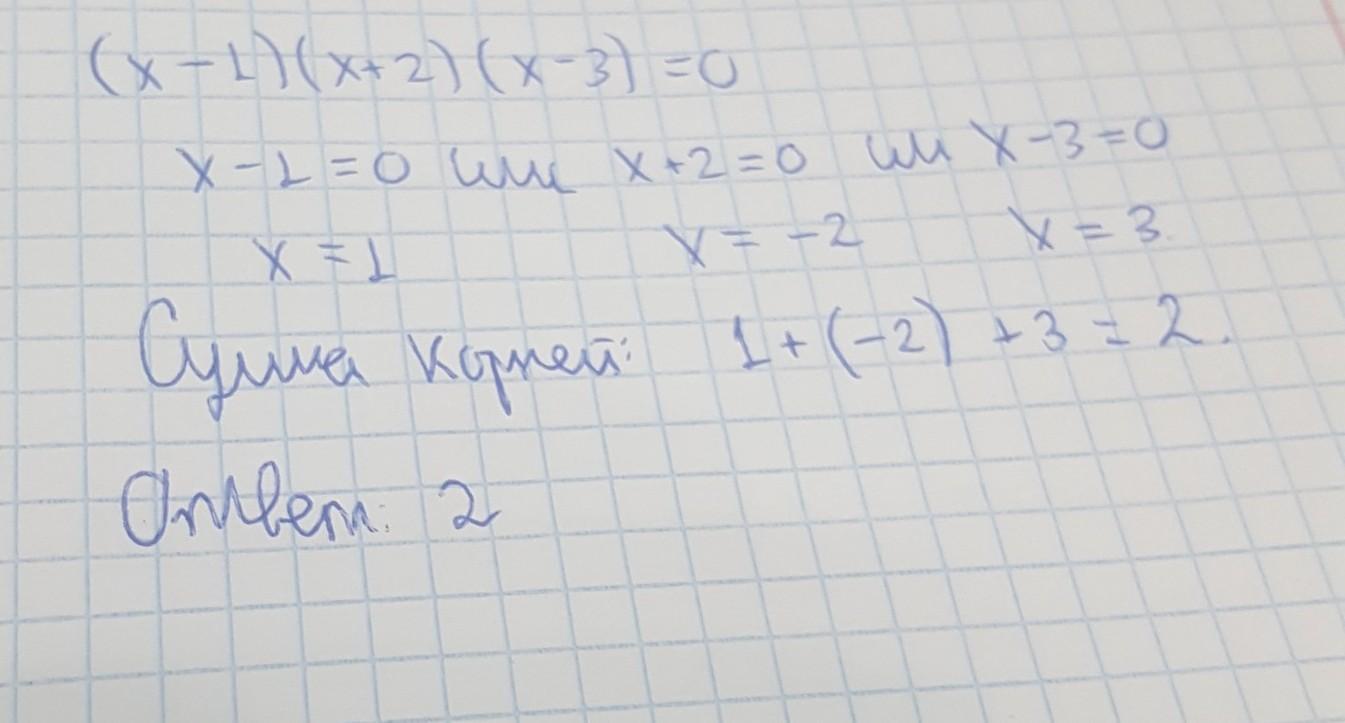 (x-1)(x+2)(x-3)=0
x-1=0 или x+2=0 или x-3=0
x=1 x=-2 x=3.
Сумма корней: 1+(-2)+3=2.
Ответ: 2